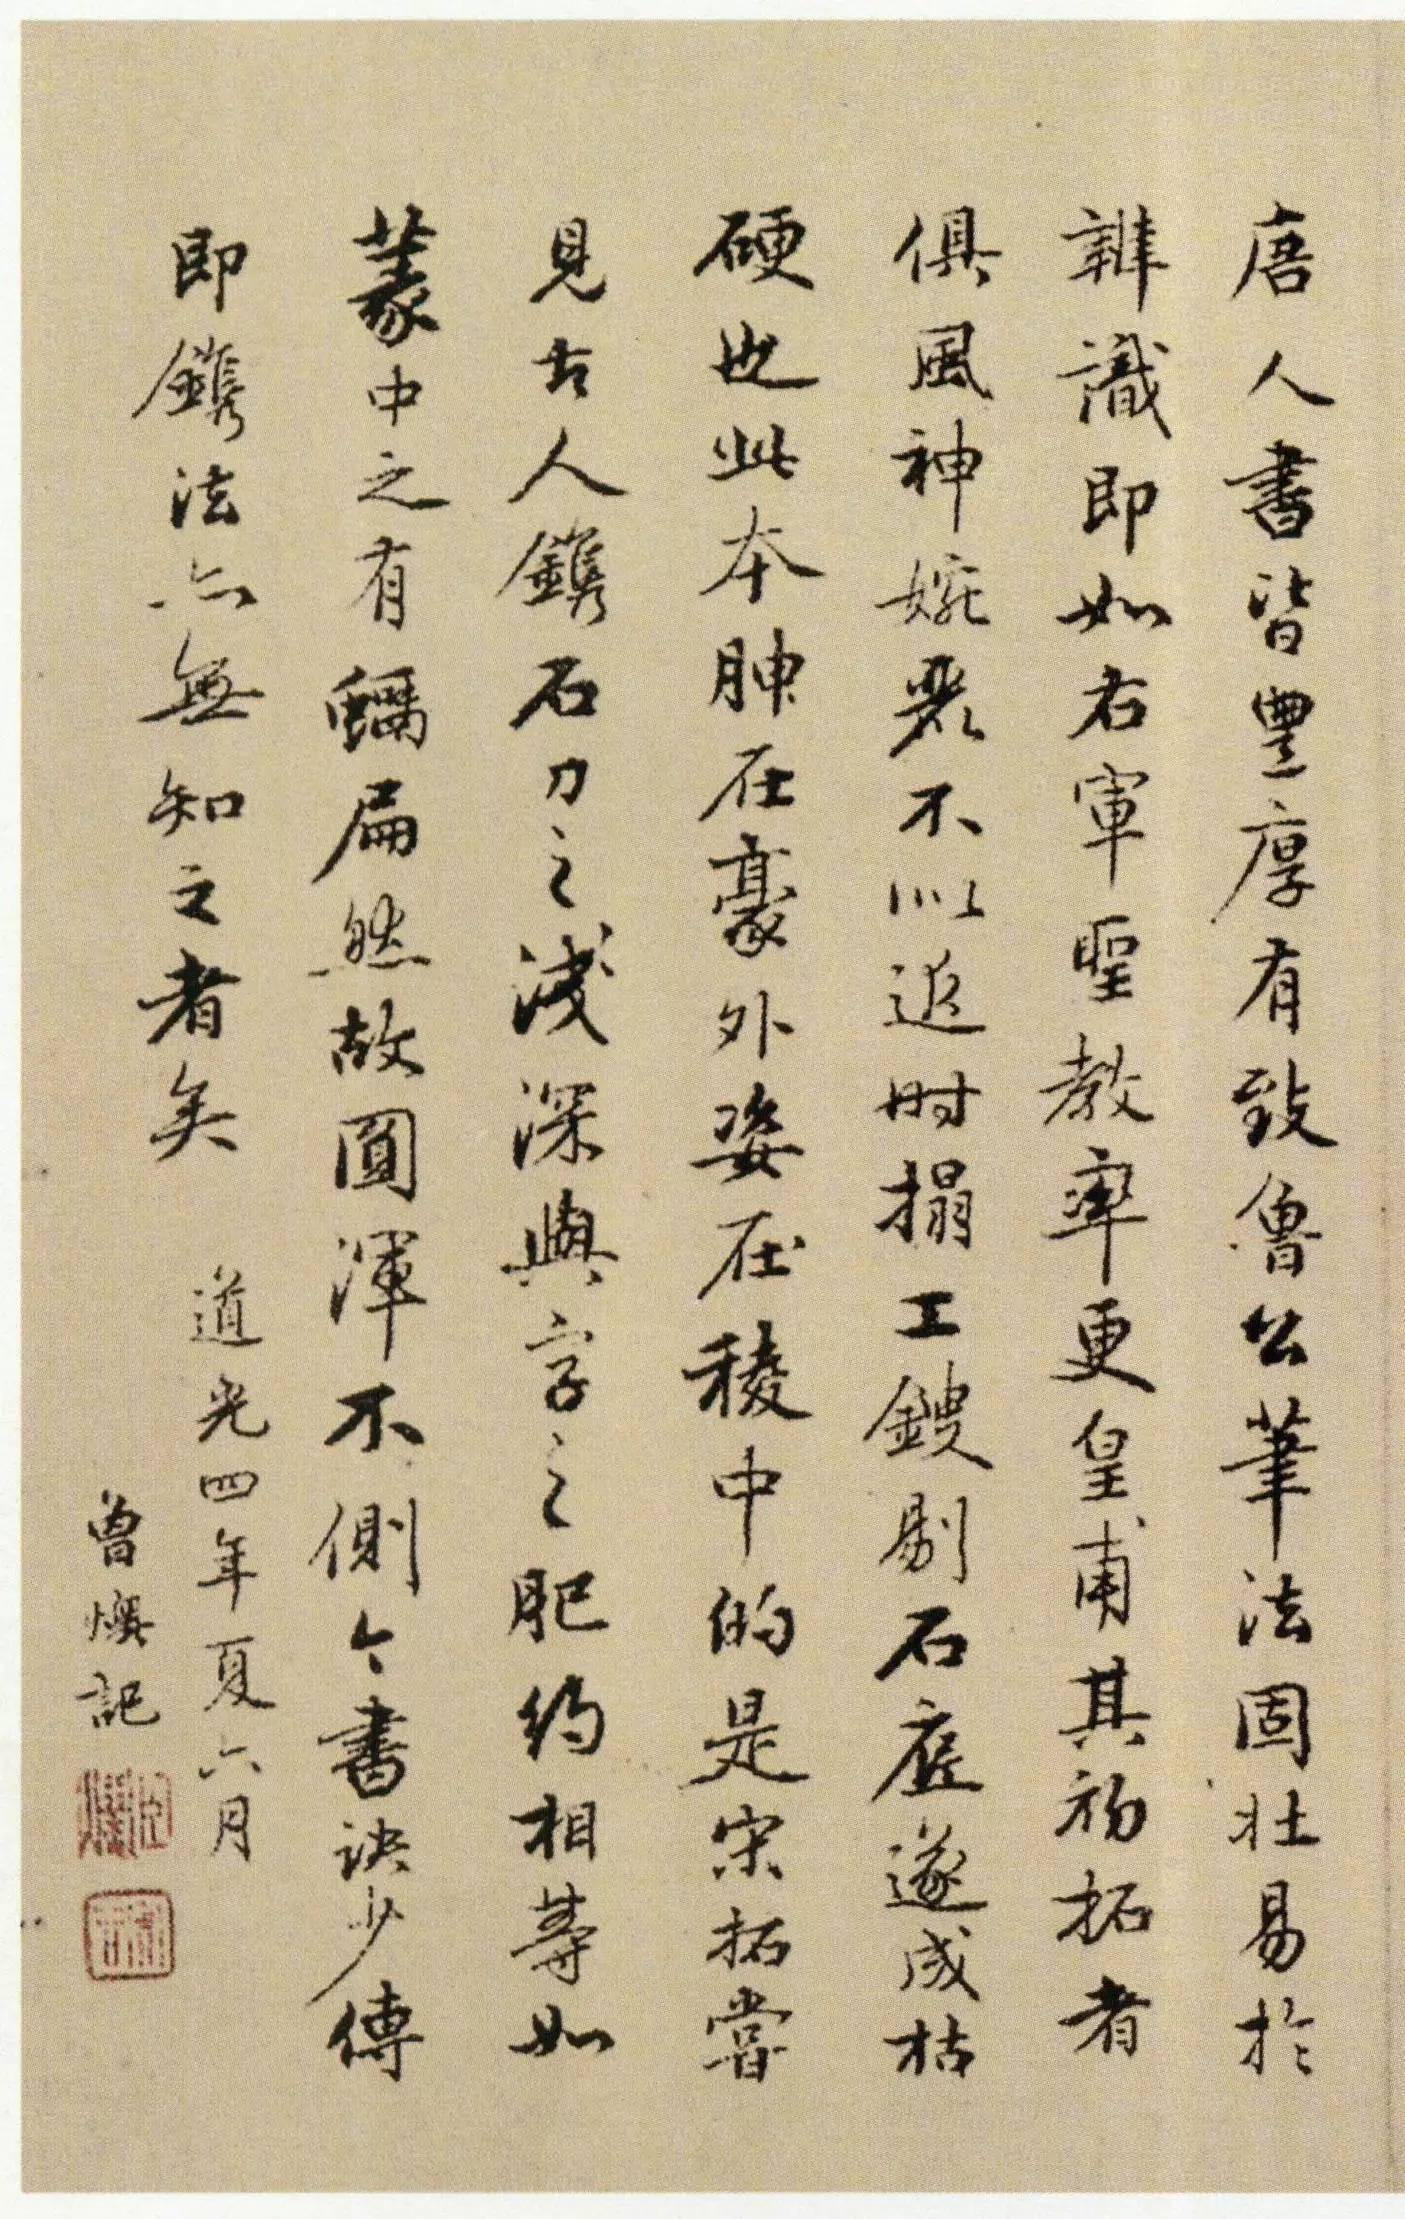 唐人書皆豐厚有致魯公筆法固壯易於
辨識即如右軍聖教率更皇甫其初拓者
俱風神婉麗不似近時搨工鎪剔石底遂成枯
硬也此本腴在豪外姿在稜中的是宋拓嘗
見古人鐫石刀之淺深與字之肥約相等如
篆中之有蠣扁然故圓渾不側今書訣少傳
即鐫法亦無知之者矣
道光四年夏六月
曾燠記